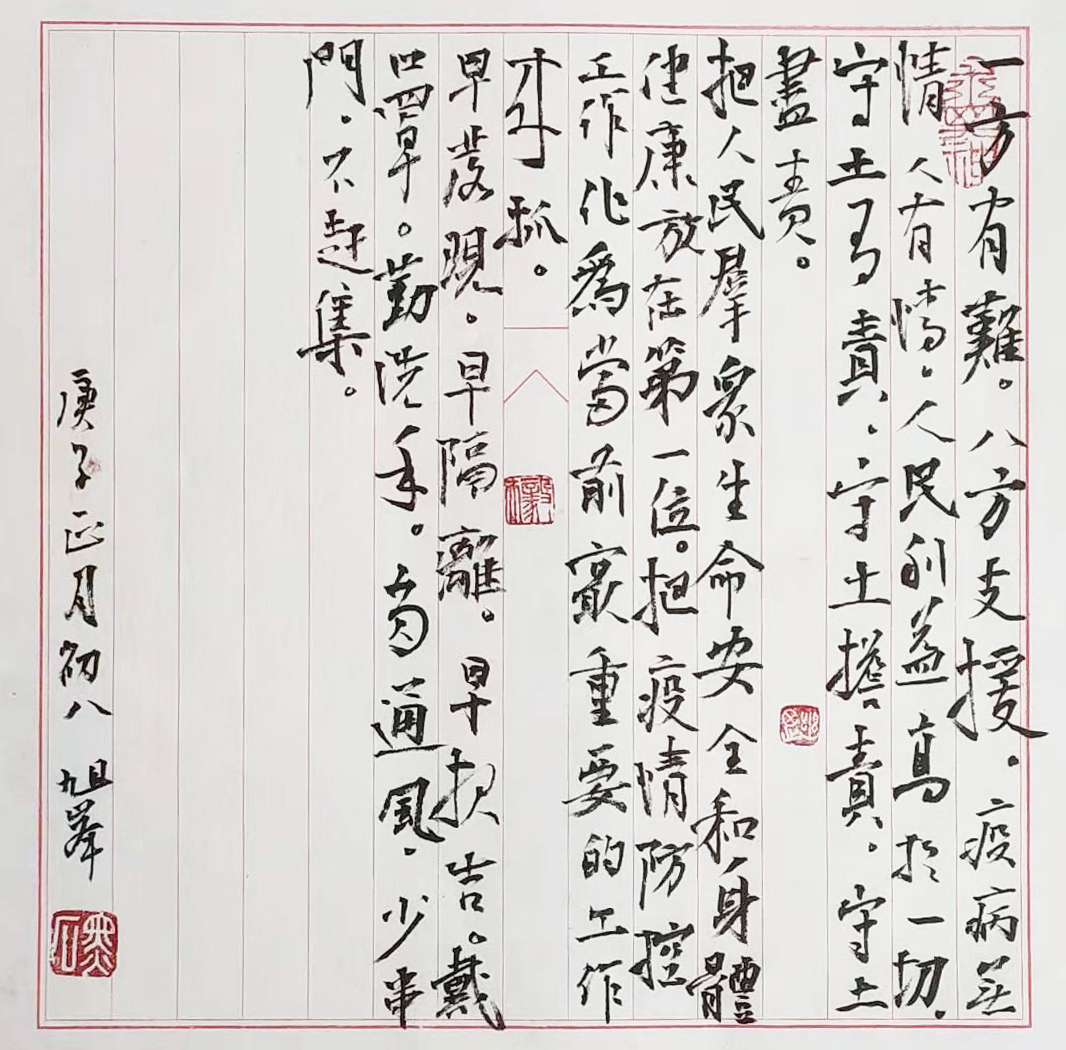 一方有難。八方支援。疫病无
情人有情。人民利益高於一切。
守土有責。守土擔責。守土
盡責。
把人民羣衆生命安全和身體
健康放在第一位。把疫情防控
工作作爲當前最重要的工作
来抓。
早發現。早隔離。早报告。戴
口罩。勤洗手。勾通風。少串
門。不赶集。
庚子正月初八 旭峯